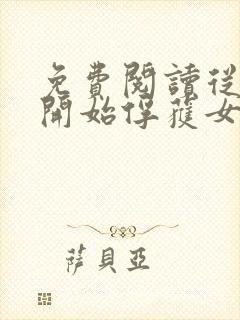 免費閱讀從
開始俘獲女
薩貝亞